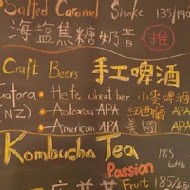 Salted Caramel Shake 135/190
海塩焦糖奶昔 推
Craft Beers 手工啤酒
Hefe wheat bar 小麥啤酒
(NZ) Aotearoa APA 紐西蘭 APA
American APA 美國 APA
Kombucha Tea 185
Passion
Fruit 185